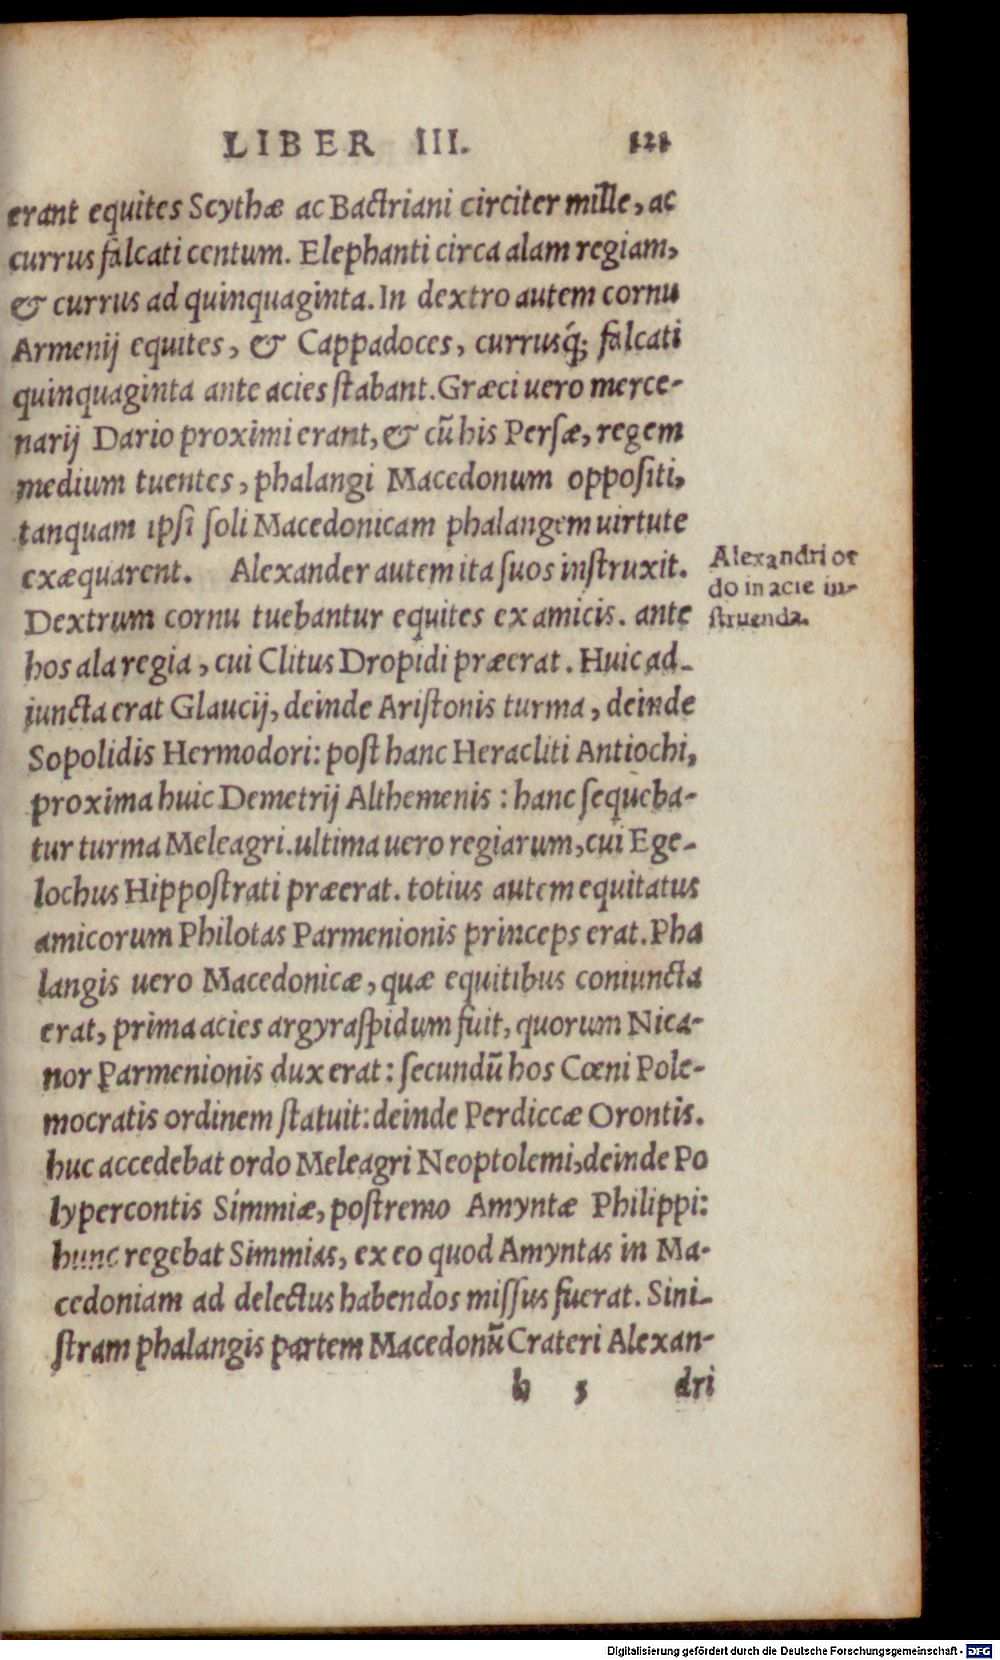 LIBER III. 121
erant equites Scythæ ac Bactriani circiter mille, ac
currus falcati centum. Elephanti circa alam regiam,
& currus ad quinquaginta. In dextro autem cornu
Armenij equites, & Cappadoces, currusq́; falcati
quinquaginta ante acies ſtabant. Græci uero merce-
narij Dario proximi erant, & cũ his Perſæ, regem
medium tuentes, phalangi Macedonum oppoſiti,
tanquam ipſi ſoli Macedonicam phalangem uirtute
exæquarent. Alexander autem ita ſuos inſtruxit.
Dextrum cornu tuebantur equites ex amicis. ante
hos ala regia, cui Clitus Dropidi præerat. Huic ad-
iuncta erat Glaucij, deinde Ariſtonis turma, deinde
Sopolidis Hermodori: poſt hanc Heracliti Antiochi,
proxima huic Demetrij Althemenis: hanc ſequeba-
tur turma Meleagri. ultima uero regiarum, cui Ege-
lochus Hippoſtrati præerat. totius autem equitatus
amicorum Philotas Parmenionis princeps erat. Pha
langis uero Macedonicæ, quæ equitibus coniuncta
erat, prima acies argyraſpidum fuit, quorum Nica-
nor Parmenionis dux erat: ſecundũ hos Cœni Pole-
mocratis ordinem ſtatuit: deinde Perdiccæ Orontis.
huc accedebat ordo Meleagri Neoptolemi, deinde Po
lypercontis Simmiæ, poſtremo Amyntæ Philippi:
hunc regebat Simmias, ex eo quod Amyntas in Ma-
cedoniam ad delectus habendos miſſus fuerat. Sini-
ſtram phalangis partem Macedonũ Crateri Alexan-
h 5 dri
Alexandri or
do in acie in-
ſtruenda.
Digitalisierung gefördert durch die Deutsche Forschungsgemeinschaft - DFG